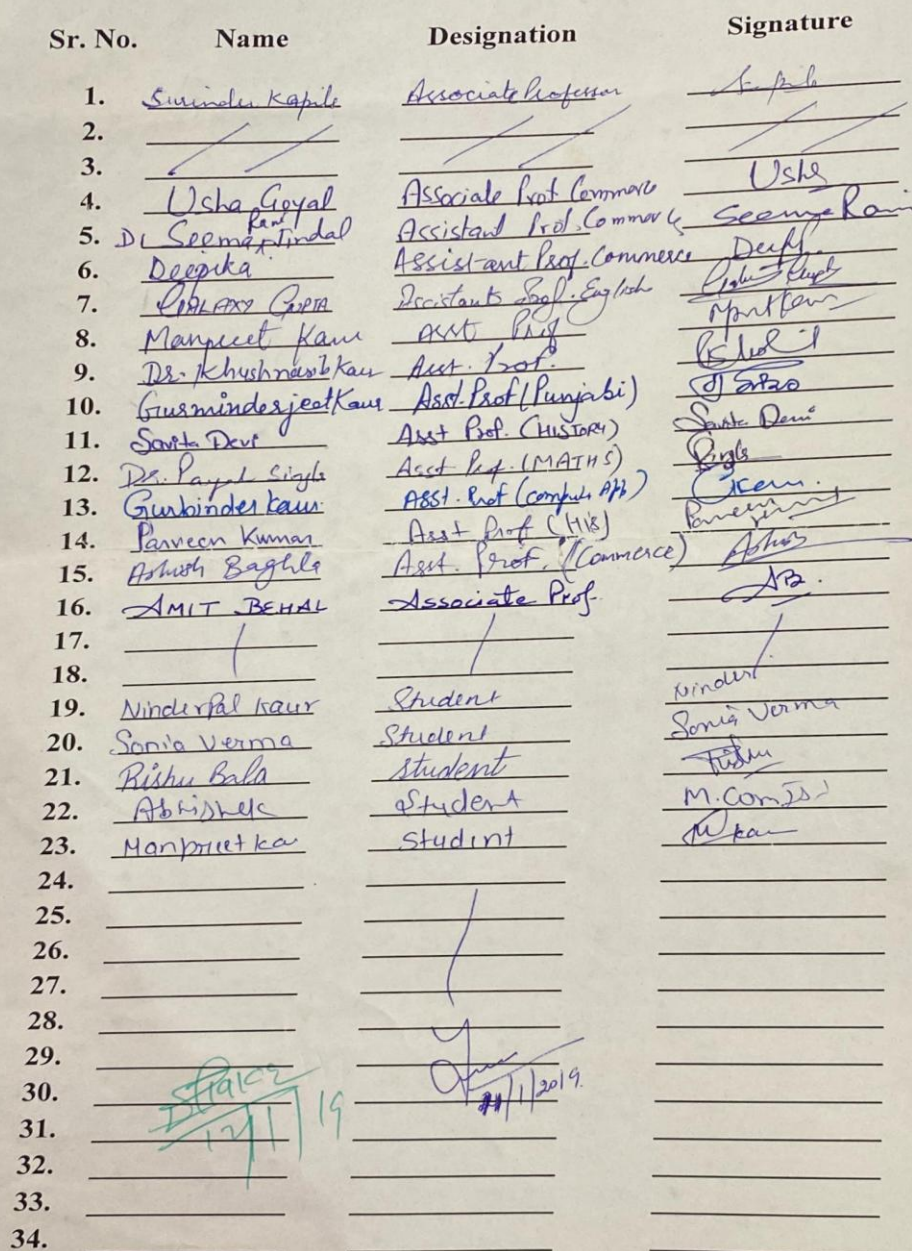 Sr. No. Name Designation Signature
1. Surinder Kapila Associate Professor
2.
3.
4. Usha Goyal Associate Prof Commerce Usha
5. Dr Seema Rani Jindal Assistant Prof. Commerce Seema Rani
6. Deepika Assistant Prof. Commerce
7. GALAXY GUPTA Assistant Prof. English
8. Manpreet Kaur Asst Prof
9. Dr. Khushnasib Kaur Asst. Prof.
10. Gurminderjeet Kaur Asst. Prof (Punjabi)
11. Savita Devi Asst Prof. (HISTORY) Savita Devi
12. Dr. Payal Singla Asst Prof. (MATHS) Singla
13. Gurbinder Kaur Asst. Prof (Comput. App)
14. Parveen Kumar Asst Prof (His)
15. Ashish Baghla Asst. Prof. (Commerce) Ashish
16. AMIT BEHAL Associate Prof. AB.
17.
18.
19. Ninderpal Kaur Student Ninder
20. Sonia Verma Student Sonia Verma
21. Rishu Bala Student Rishu
22. Abhishek Student
23. Manpreet ka Student
24.
25.
26.
27.
28.
29.
30. 11/1/2019
31. 12/1/19
32.
33.
34.